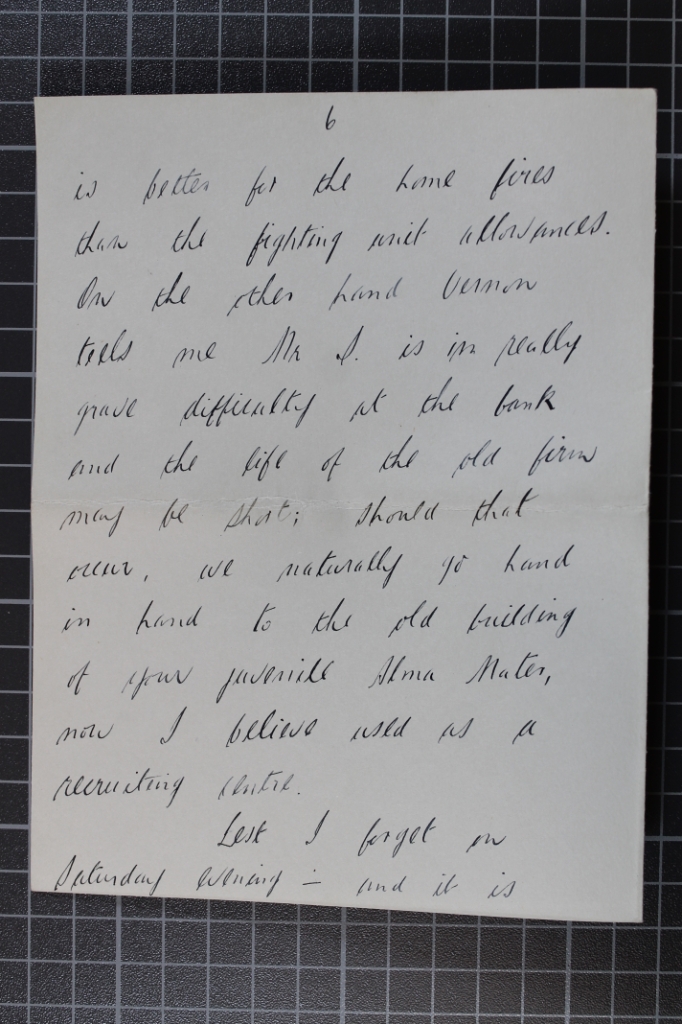 6
is better for the home fires
than the fighting unit allowances.
On the other hand Vernon
tells me Mr S. is in really
grave difficulty at the bank
and the life of the old firm
may be short; should that
occur, we naturally go hand
in hand to the old building
of your juvenile Alma Mater,
now I believe used as a
recruiting centre.
Lest I forget on
Saturday evening – and it is